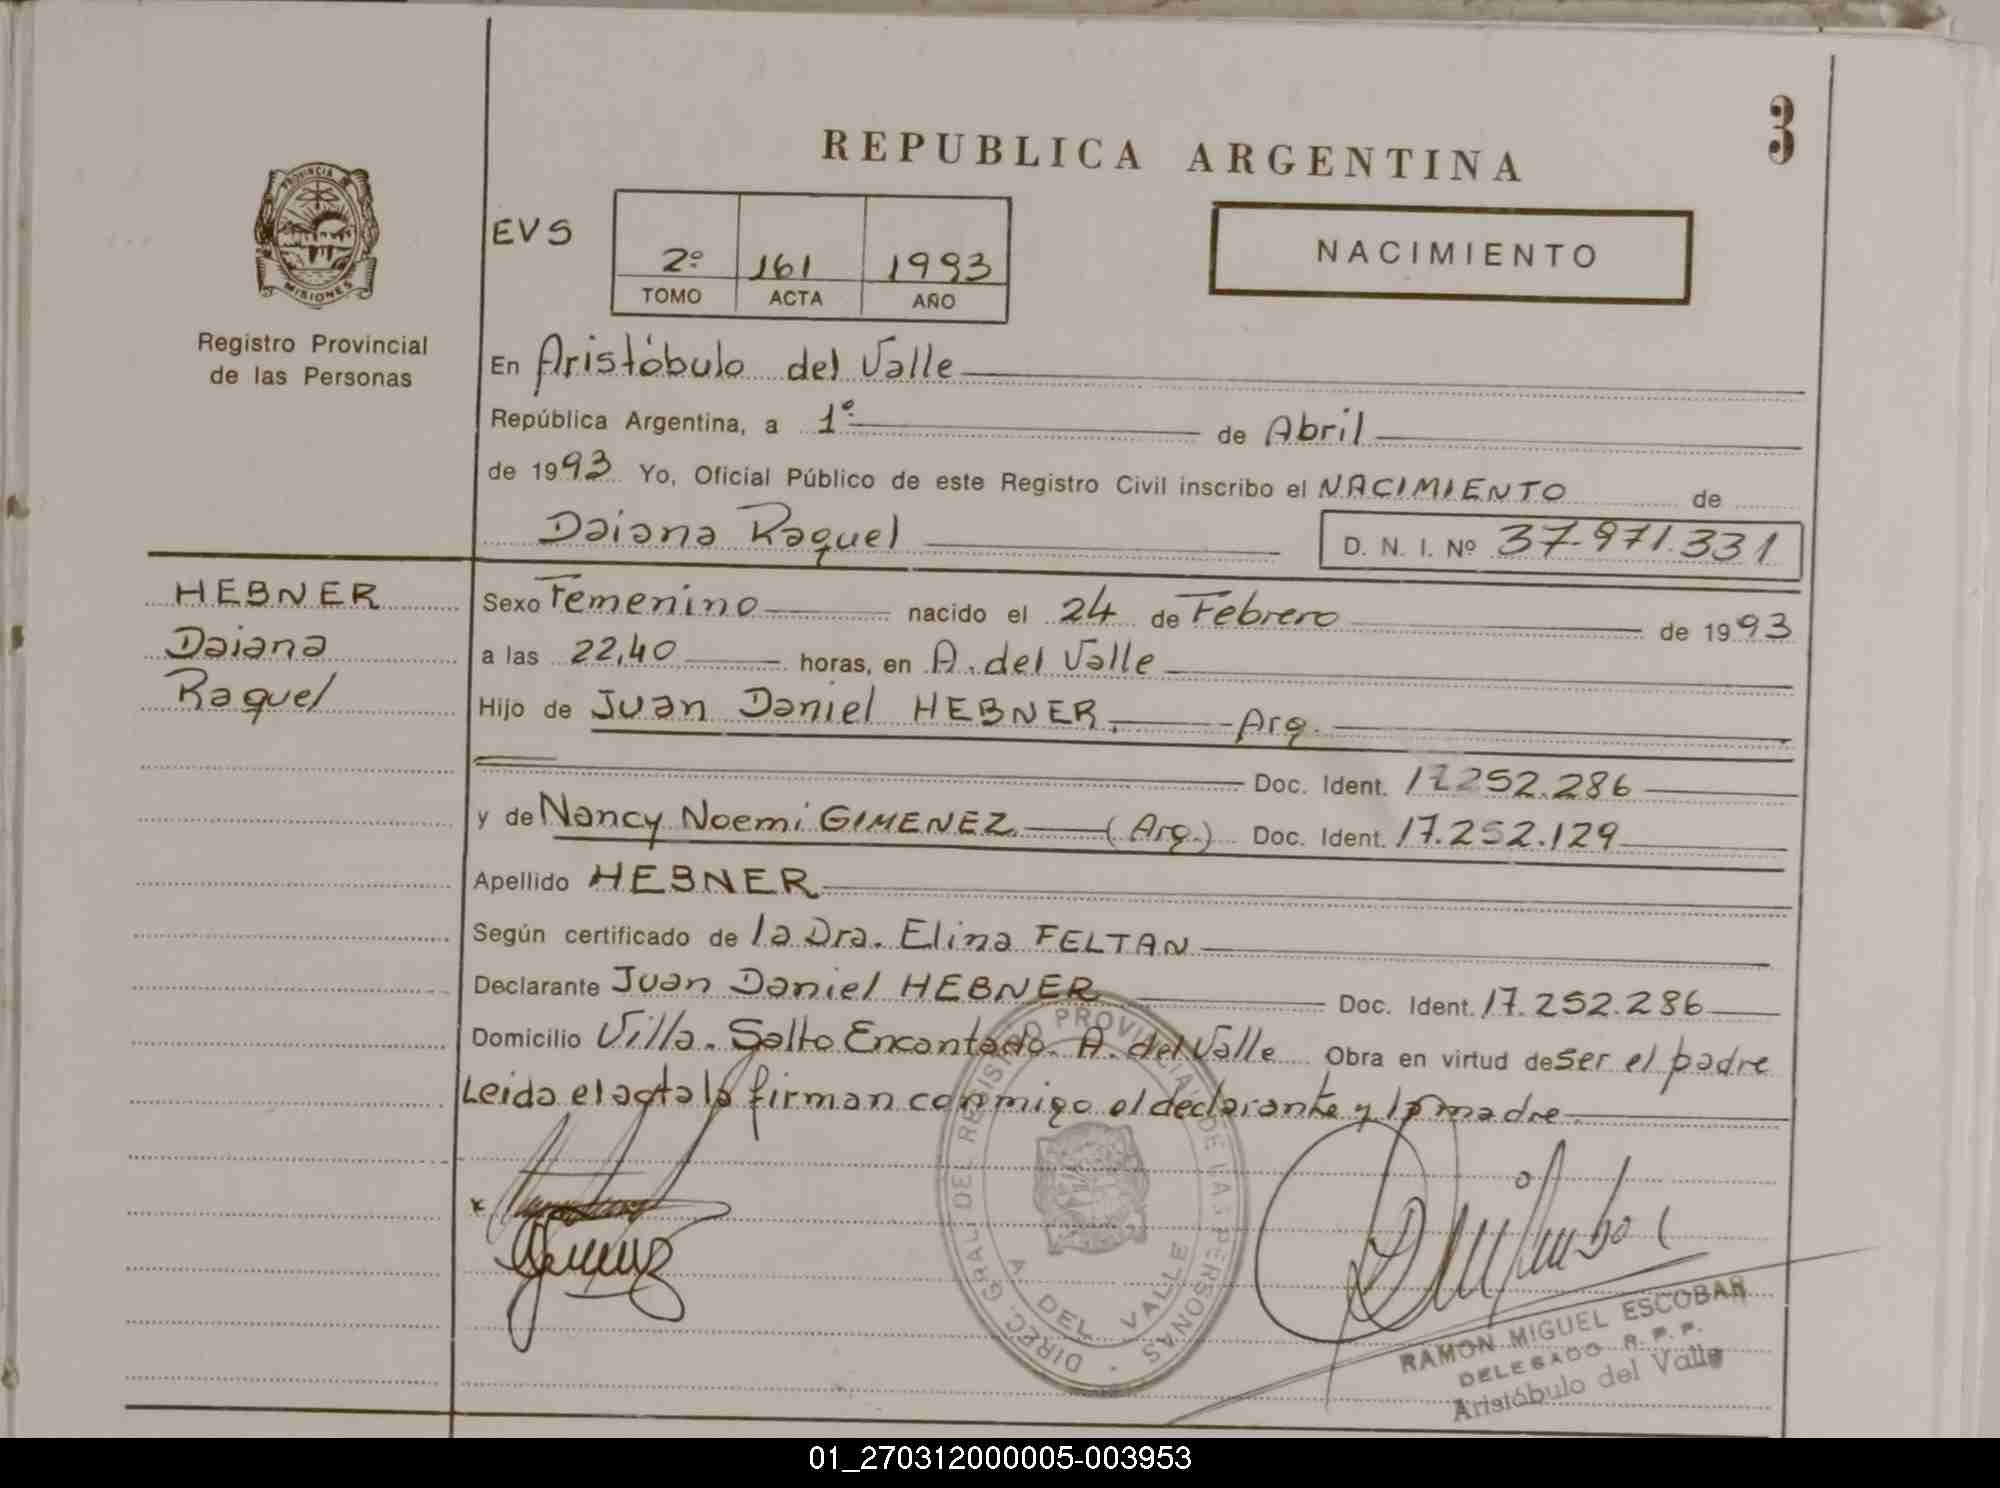 3
REPUBLICA ARGENTINA
PROVINCIA DE
MISIONES
Registro Provincial
de las Personas
EVS
2º 161 1993
TOMO ACTA AÑO
NACIMIENTO
En Aristóbulo del Valle
República Argentina, a 1º de Abril
de 1993 Yo, Oficial Público de este Registro Civil inscribo el NACIMIENTO de
Daiana Raquel D. N. I. Nº 37.971.331
HEBNER
Daiana
Raquel
Sexo Femenino nacido el 24 de Febrero de 1993
a las 22,40 horas, en A. del Valle
Hijo de Juan Daniel HEBNER. Arg.
Doc. Ident. 17252.286
y de Nancy Noemi GIMENEZ (Arg.) Doc. Ident. 17.252.129
Apellido HEBNER
Según certificado de la Dra. Elina FELTAN
Declarante Juan Daniel HEBNER Doc. Ident. 17.252.286
Domicilio Villa. Salto Encantado. A. del Valle Obra en virtud de ser el padre
Leida el acta la firman conmigo el declarante y la madre
DIREC. GRAL. DEL REGISTRO PROVINCIAL DE LAS PERSONAS
A. DEL VALLE
RAMON MIGUEL ESCOBAR
DELEGADO R. P. P.
Aristóbulo del Valle
01_270312000005-003953